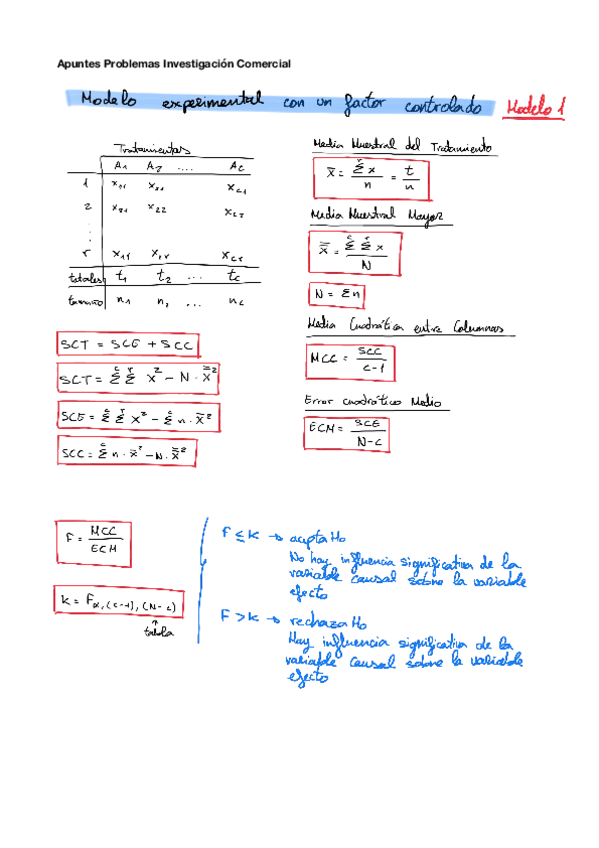 Apuntes Problemas Investigación Comercial
Modelo experimental con un factor controlado Modelo 1
Tratamientos
A1 A2 .... Ac
1 x11 x21 xc1
2 x21 x22 xc2
r x1r x2r xcr
totales t1 t2 ... tc
tamaño n1 n2 ... nc
Media Muestral del Tratamiento
x̄ = Σ^r x / n = t / n
Media Muestral Mayor
x̿ = Σ^c Σ^r x / N
N = Σn
Media Cuadrática entre Columnas
MCC = SCC / c-1
Error cuadrático Medio
ECM = SCE / N-c
SCT = SCE + SCC
SCT = Σ^c Σ^r x² - N · x̿²
SCE = Σ^c Σ^r x² - Σ^c n · x̄²
SCC = Σ^c n · x̄² - N · x̿²
F = MCC / ECM
K = Fα, (c-1), (N-c)
↑
tabla
F ≤ K → acepta Ho
No hay influencia significativa de la
variable causal sobre la variable
efecto
F > K → rechaza Ho
Hay influencia significativa de la
variable causal sobre la variable
efecto